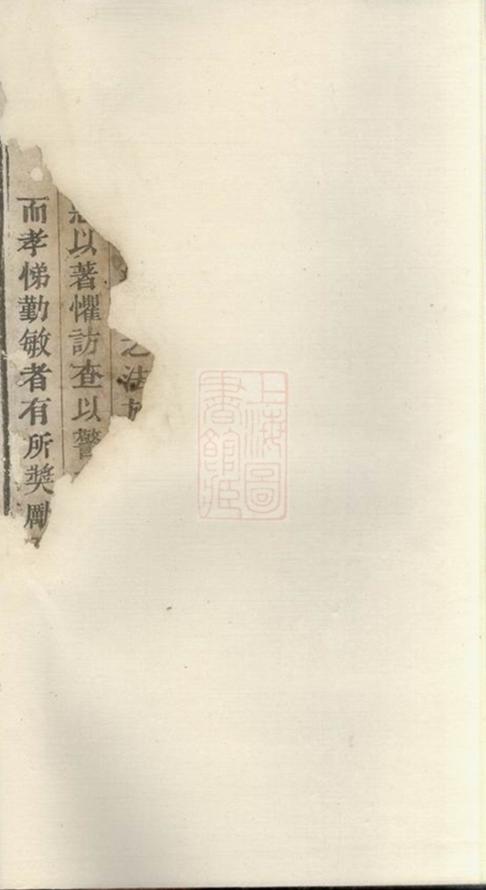 之法
以著懼訪查以警
而孝悌勤敏者有所獎
上海圖
書館藏